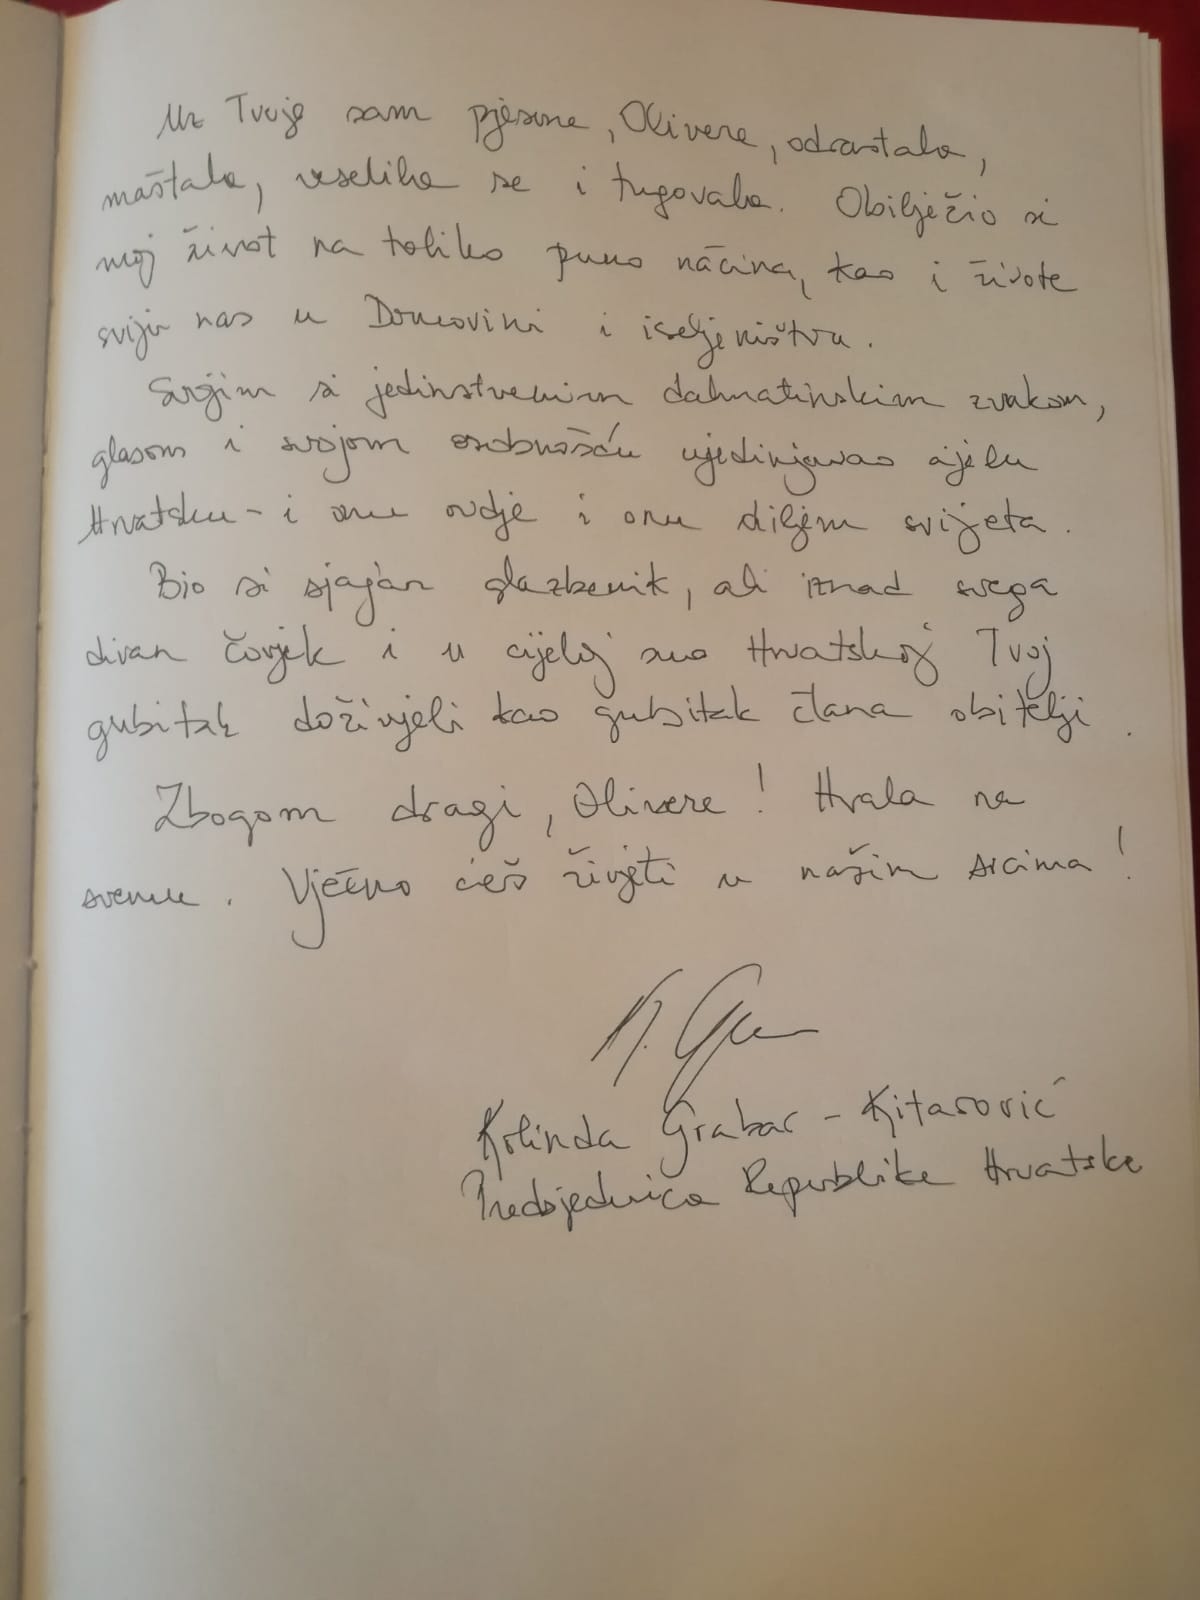 Uz Tvoje sam pjesme, Olivere, odrastala,
maštala, veselila se i tugovala. Obilježio si
moj život na toliko puno načina, kao i živote
sviju nas u Domovini i iseljeništvu.
Svojim si jedinstvenim dalmatinskim zvukom,
glasom i svojom osobnošću ujedinjavao cijelu
Hrvatsku - i onu ovdje i onu diljem svijeta.
Bio si sjajan glazbenik, ali iznad svega
divan čovjek i u cijeloj smo Hrvatskoj Tvoj
gubitak doživjeli kao gubitak člana obitelji.
Zbogom dragi, Olivere! Hvala na
svemu. Vječno ćeš živjeti u našim srcima!
Kolinda Grabar - Kitarović
Predsjednica Republike Hrvatske